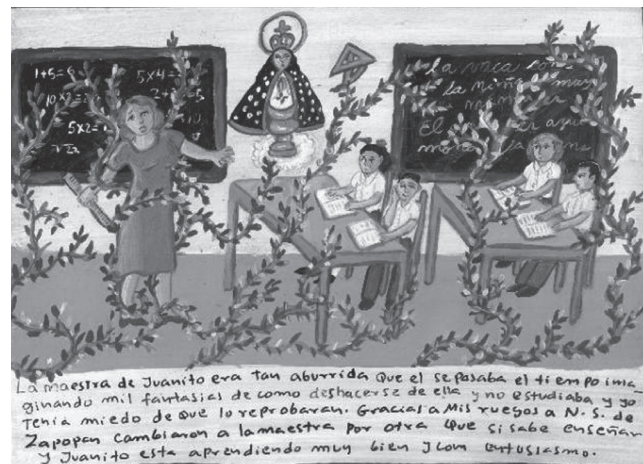 1+5=6
5x4=
10x2=
5x2=
la vaca
la niña
El
La maestra de Juanito era tan aburrida que el se pasaba el tiempo ima
ginando mil fantasias de como deshacerse de ella y no estudiaba y yo
tenia miedo de que lo reprobaran. Gracias a Mis ruegos a N. S. de
Zapopan cambiaron a la maestra por otra que si sabe enseñar
y Juanito esta aprendiendo muy bien y con entusiasmo.